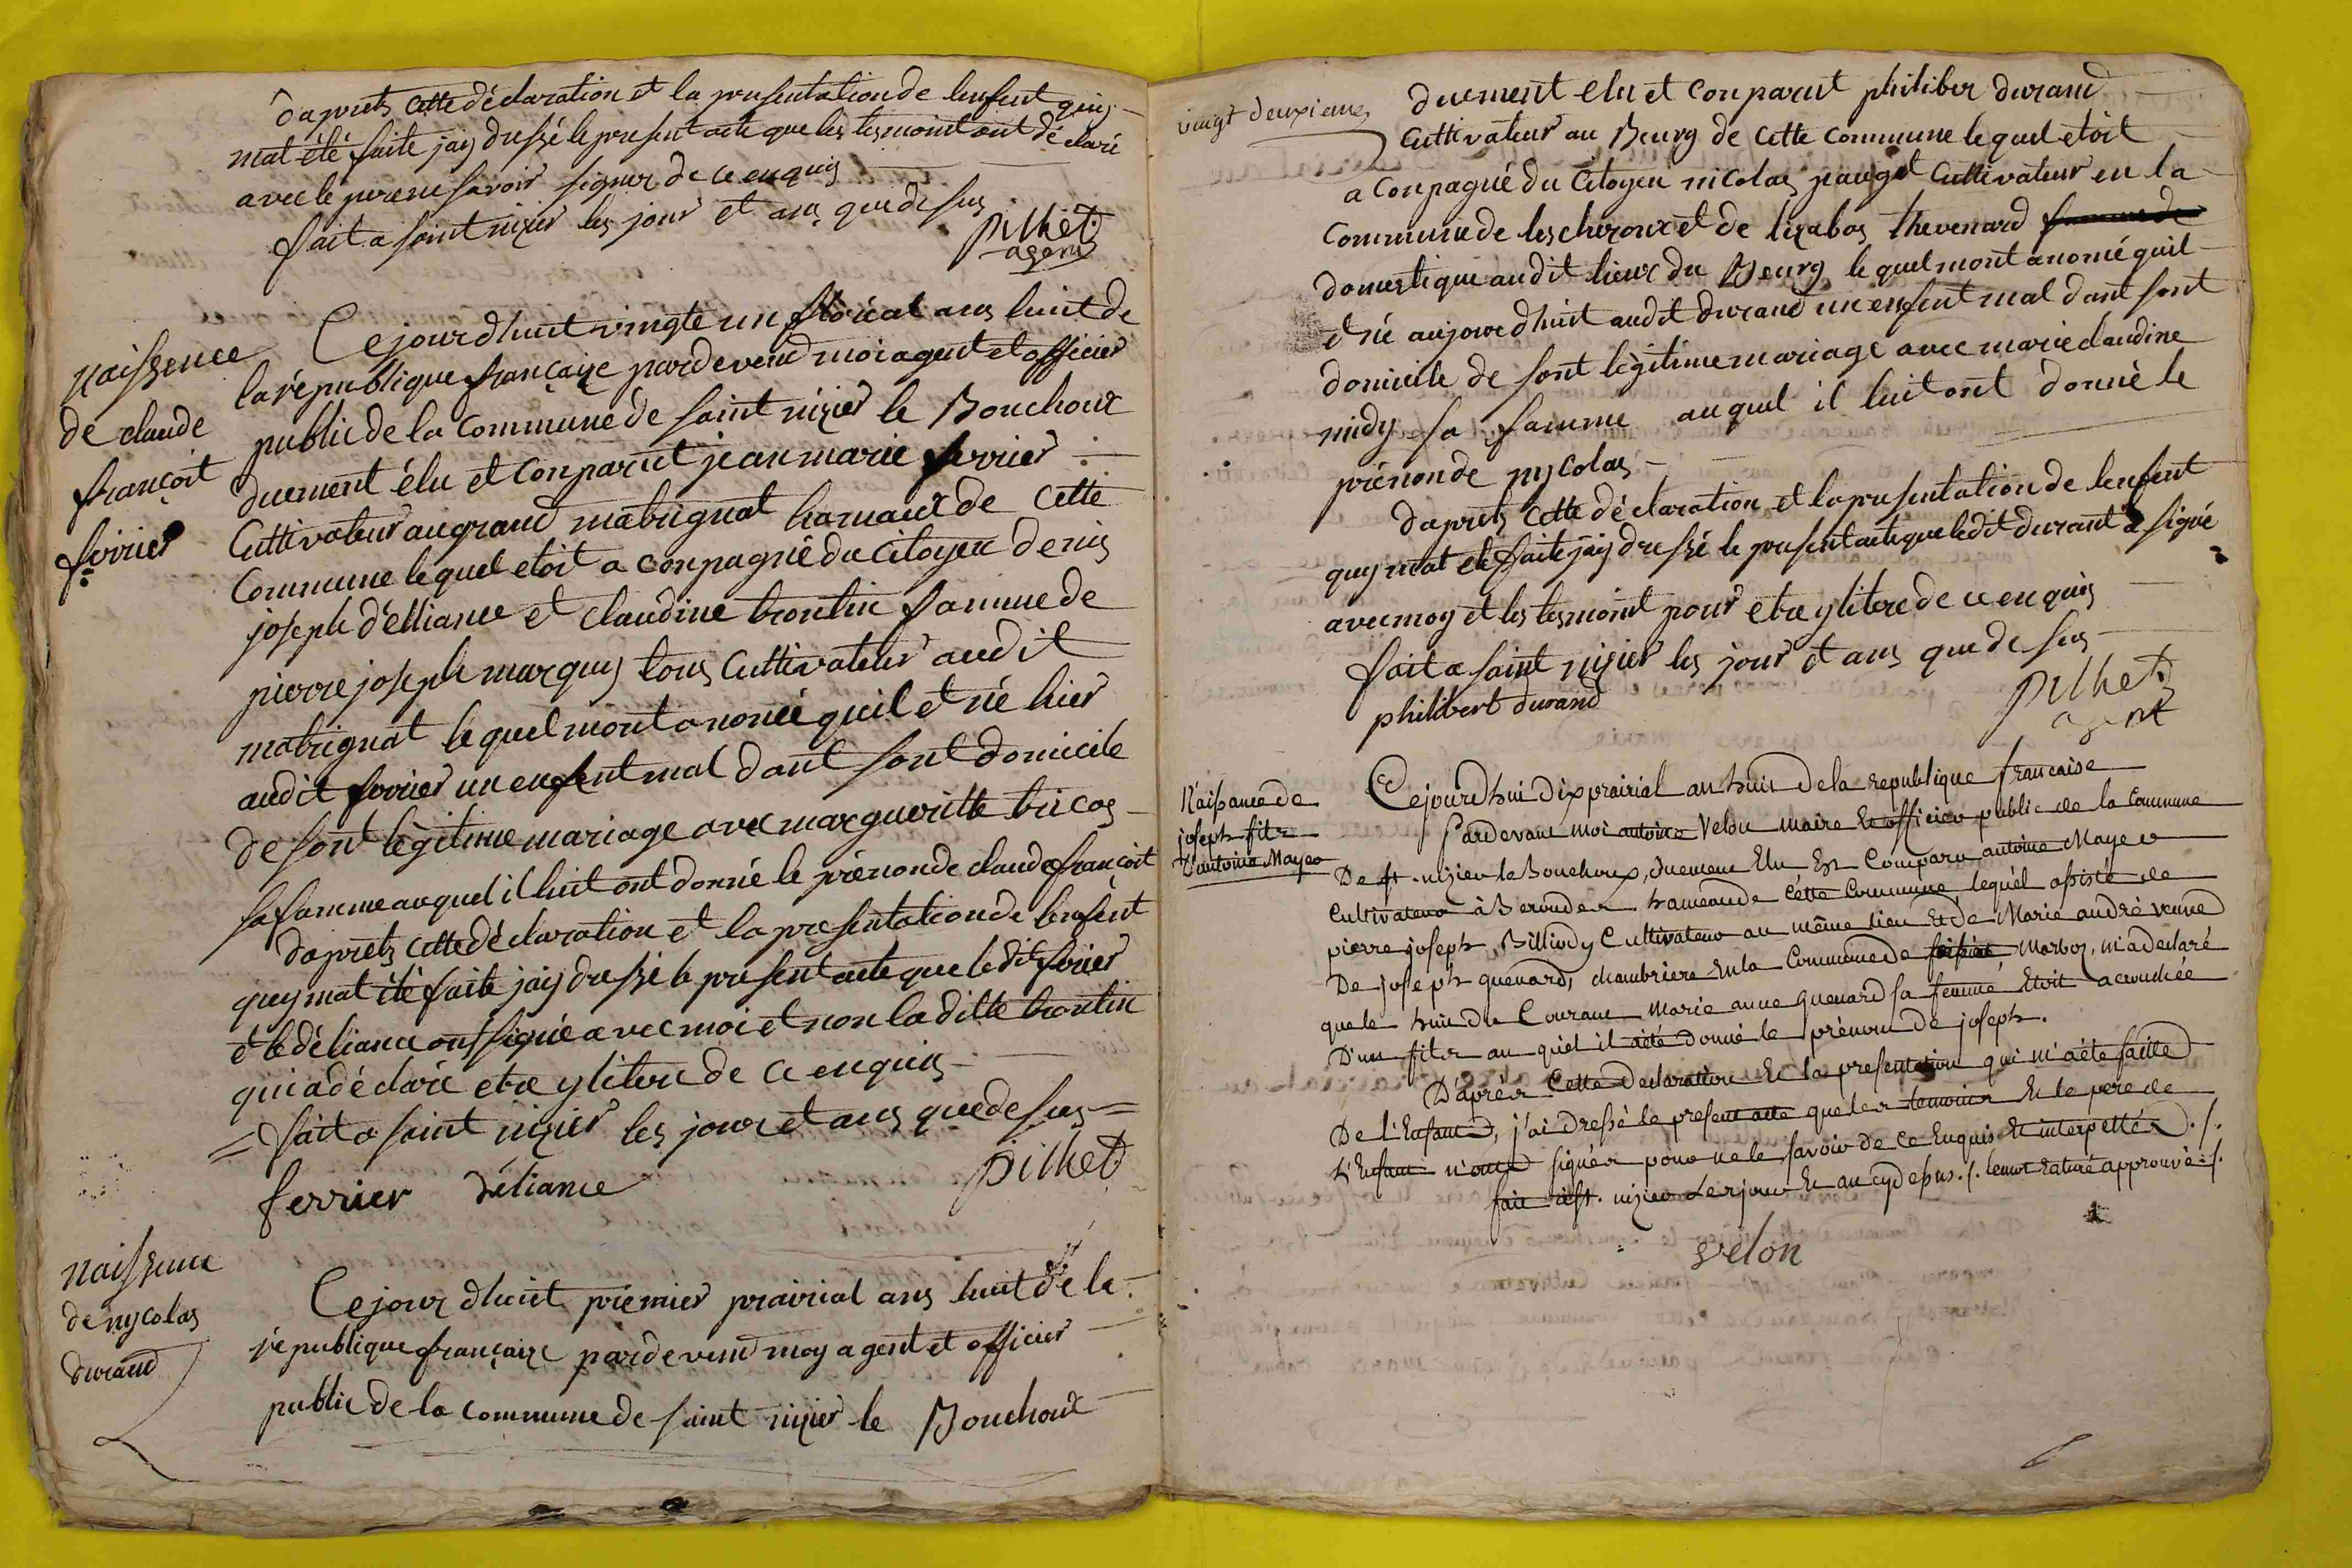 daprets cette déclaration et la presentation de lenfent quiy
mat été faite jaiy dressé le present acte que les tesmoint ont déclaré
avec le perene savoir signer de ce enquis
fait a saint nizier les jour et ans que de sus
pilhet
agent
naissence
de claude
françoit
ferrier
Cejourdhuit vingte un floréal ans huit de
la république françaize pardevend moi agent et officier
public de la Commune de saint nizier le Bouchoux
duement élu et Conparut jean marie ferrier
Cultivateur au grand matrignat hamaux de Cette
Commune lequel etoit a Conpagnié du Citoyen denis
joseph déliance et Claudine trontin famme de
pierre joseph marquis tous Cultivateur audit
matrignat lequel mont anoncé quil et né hier
audit ferrier un enfent mal dant sont domicile
de sont légitime mariage avec margueritte bricos
sa famme auquel il luit ont donné le prénon de claude françoit
daprets cette déclaration et la presentation de lenfent
quiy mat été faite jaiy dressé le present acte que ledit ferrier
et le déliance ont signié avec moi et non la ditte trontin
qui a déclaré etre ylitere de ce enquis
= fait a saint nizier les jour et ans que de sus =
ferrier déliance pilhet
naissence
de nycolas
durand
Cejour dhuit premier prairial ans huit de la
république françaize pardevend moy agent et officier
public de la commune de saint nizier le Bouchoux
vingt deuxieme
duement elu et Conparut philiber durand
Cultivateur au Bourg de Cette Commune lequel etoit
a Conpagnié du Citoyen nicolas pauget Cultivateur en la
Commune de lescheroux et de lizabos thevenard famme de
domestique audit lieux du Bourg lequel mont anomé quil
et né aujourdhuit audit durand un enfent mal dant sont
domicile de sont légitime mariage avec marie claudine
midy sa famme auquel il luit ont donné le
prénon de nycolas
daprets cette déclaration et la presentation de lenfent
quiy mat eté faite jaiy dressé le present acte que ledit durant a signé
avec moy et les tesmoint pour etre ylitere de ce enquis
fait a saint nizier les jour et ans que de sus
philibert durand
pilhet
agent
Naissance de
joseph fils
d'antoine Mayer
Cejourdhui dix prairial an huit de la republique francaise
Pardevant moi antoine Velon maire et officier public de la commune
De st. nizier le Bouchoux, duement Elu Est Comparu antoine Mayer
Cultivateur à Berouder hameau de Cétte Commune, lequél assisté de
pierre joseph Billiody Cultivateur au même lieu Et de Marie andré veuve
De joseph guenard, chambriere En la Commune de Marboz, m'a declaré
que le huit du Courant Marie anne guenard sa femme Etoit acouchée
D'un fils au quél il a été donné le prénom de joseph.
D'après Cette Declaration Et la presentation qui m'a été faitte
De l'Enfant, j'ai dressé le present acte que les temoins Et le pere de
L'Enfant n'ont signés pour ne le savoir de Ce Enquis Et interpellés ./.
fait à st. nizier Les jour Et an cy dessus ./. le mot raturé approuvé ./.
velon